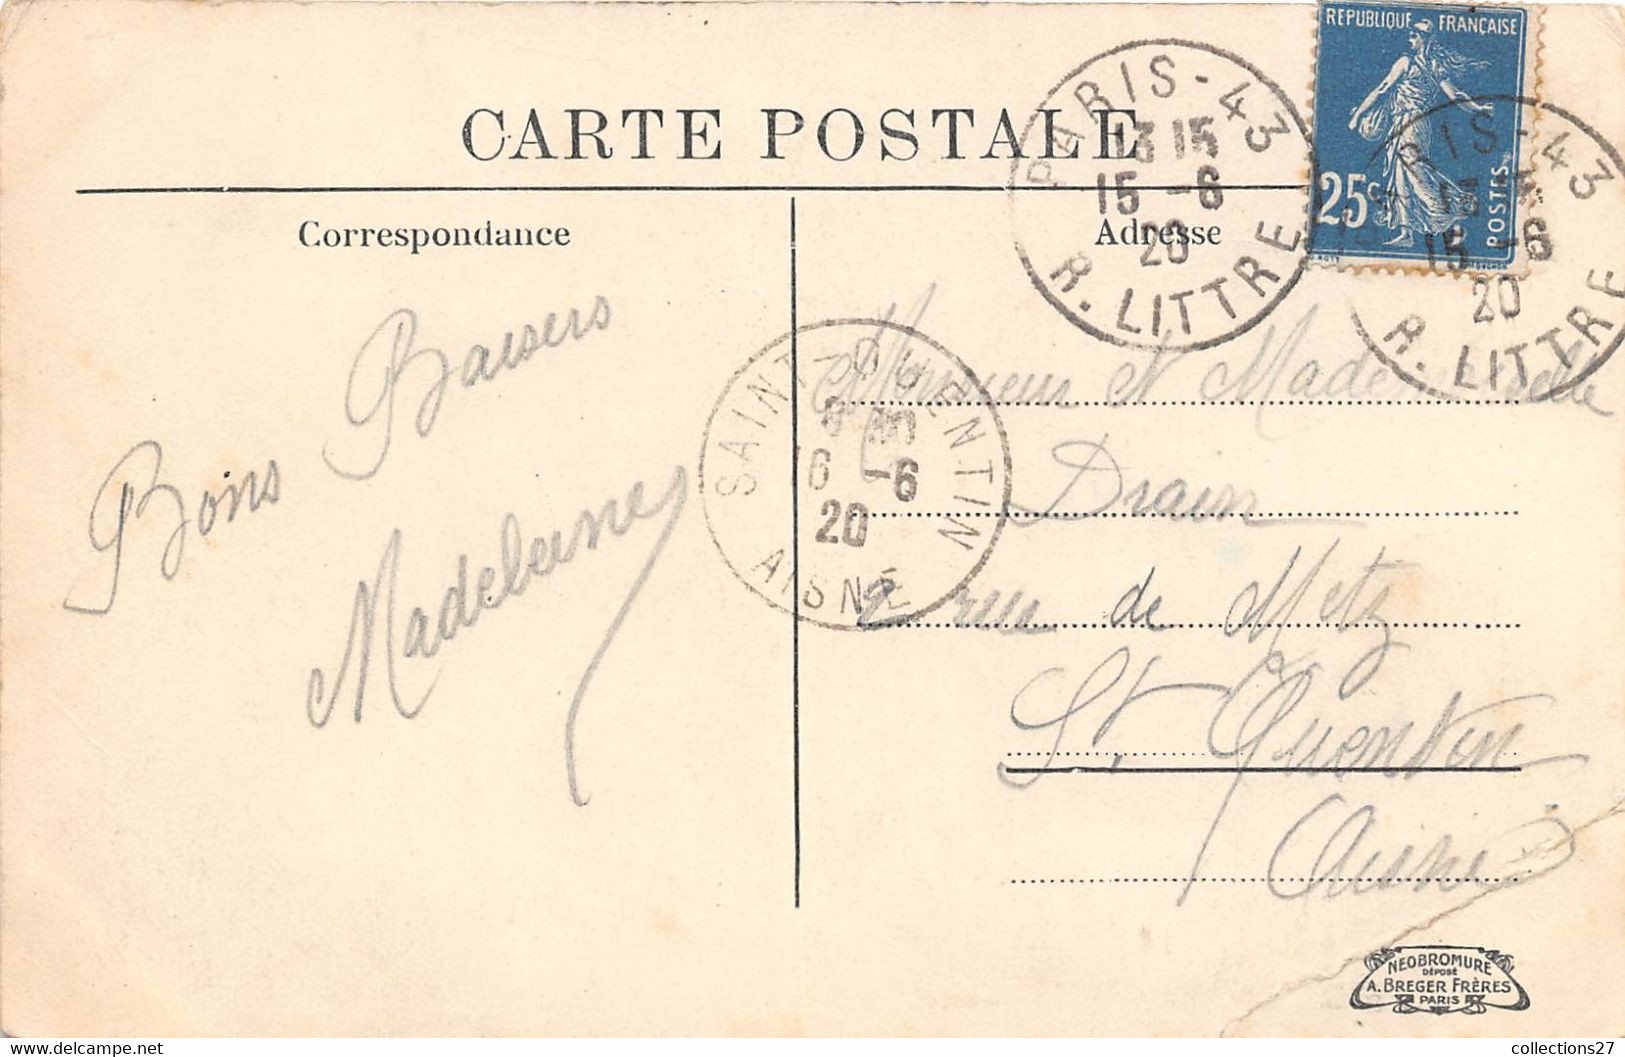 CARTE POSTALE
Correspondance
Adresse
REPUBLIQUE FRANÇAISE
25c
POSTES
PARIS-43
13 15
15 -6
20
R. LITTRE
PARIS-43
15 -6
20
R. LITTRE
SAINT QUENTIN
16 -6
20
AISNE
Bons Baisers
Madeleine
Monsieur et Mademoiselle
Drain
2 rue de Metz
St Quentin
Aisne
NEOBROMURE
DÉPOSÉ
A. BREGER FRÈRES
PARIS
collections27